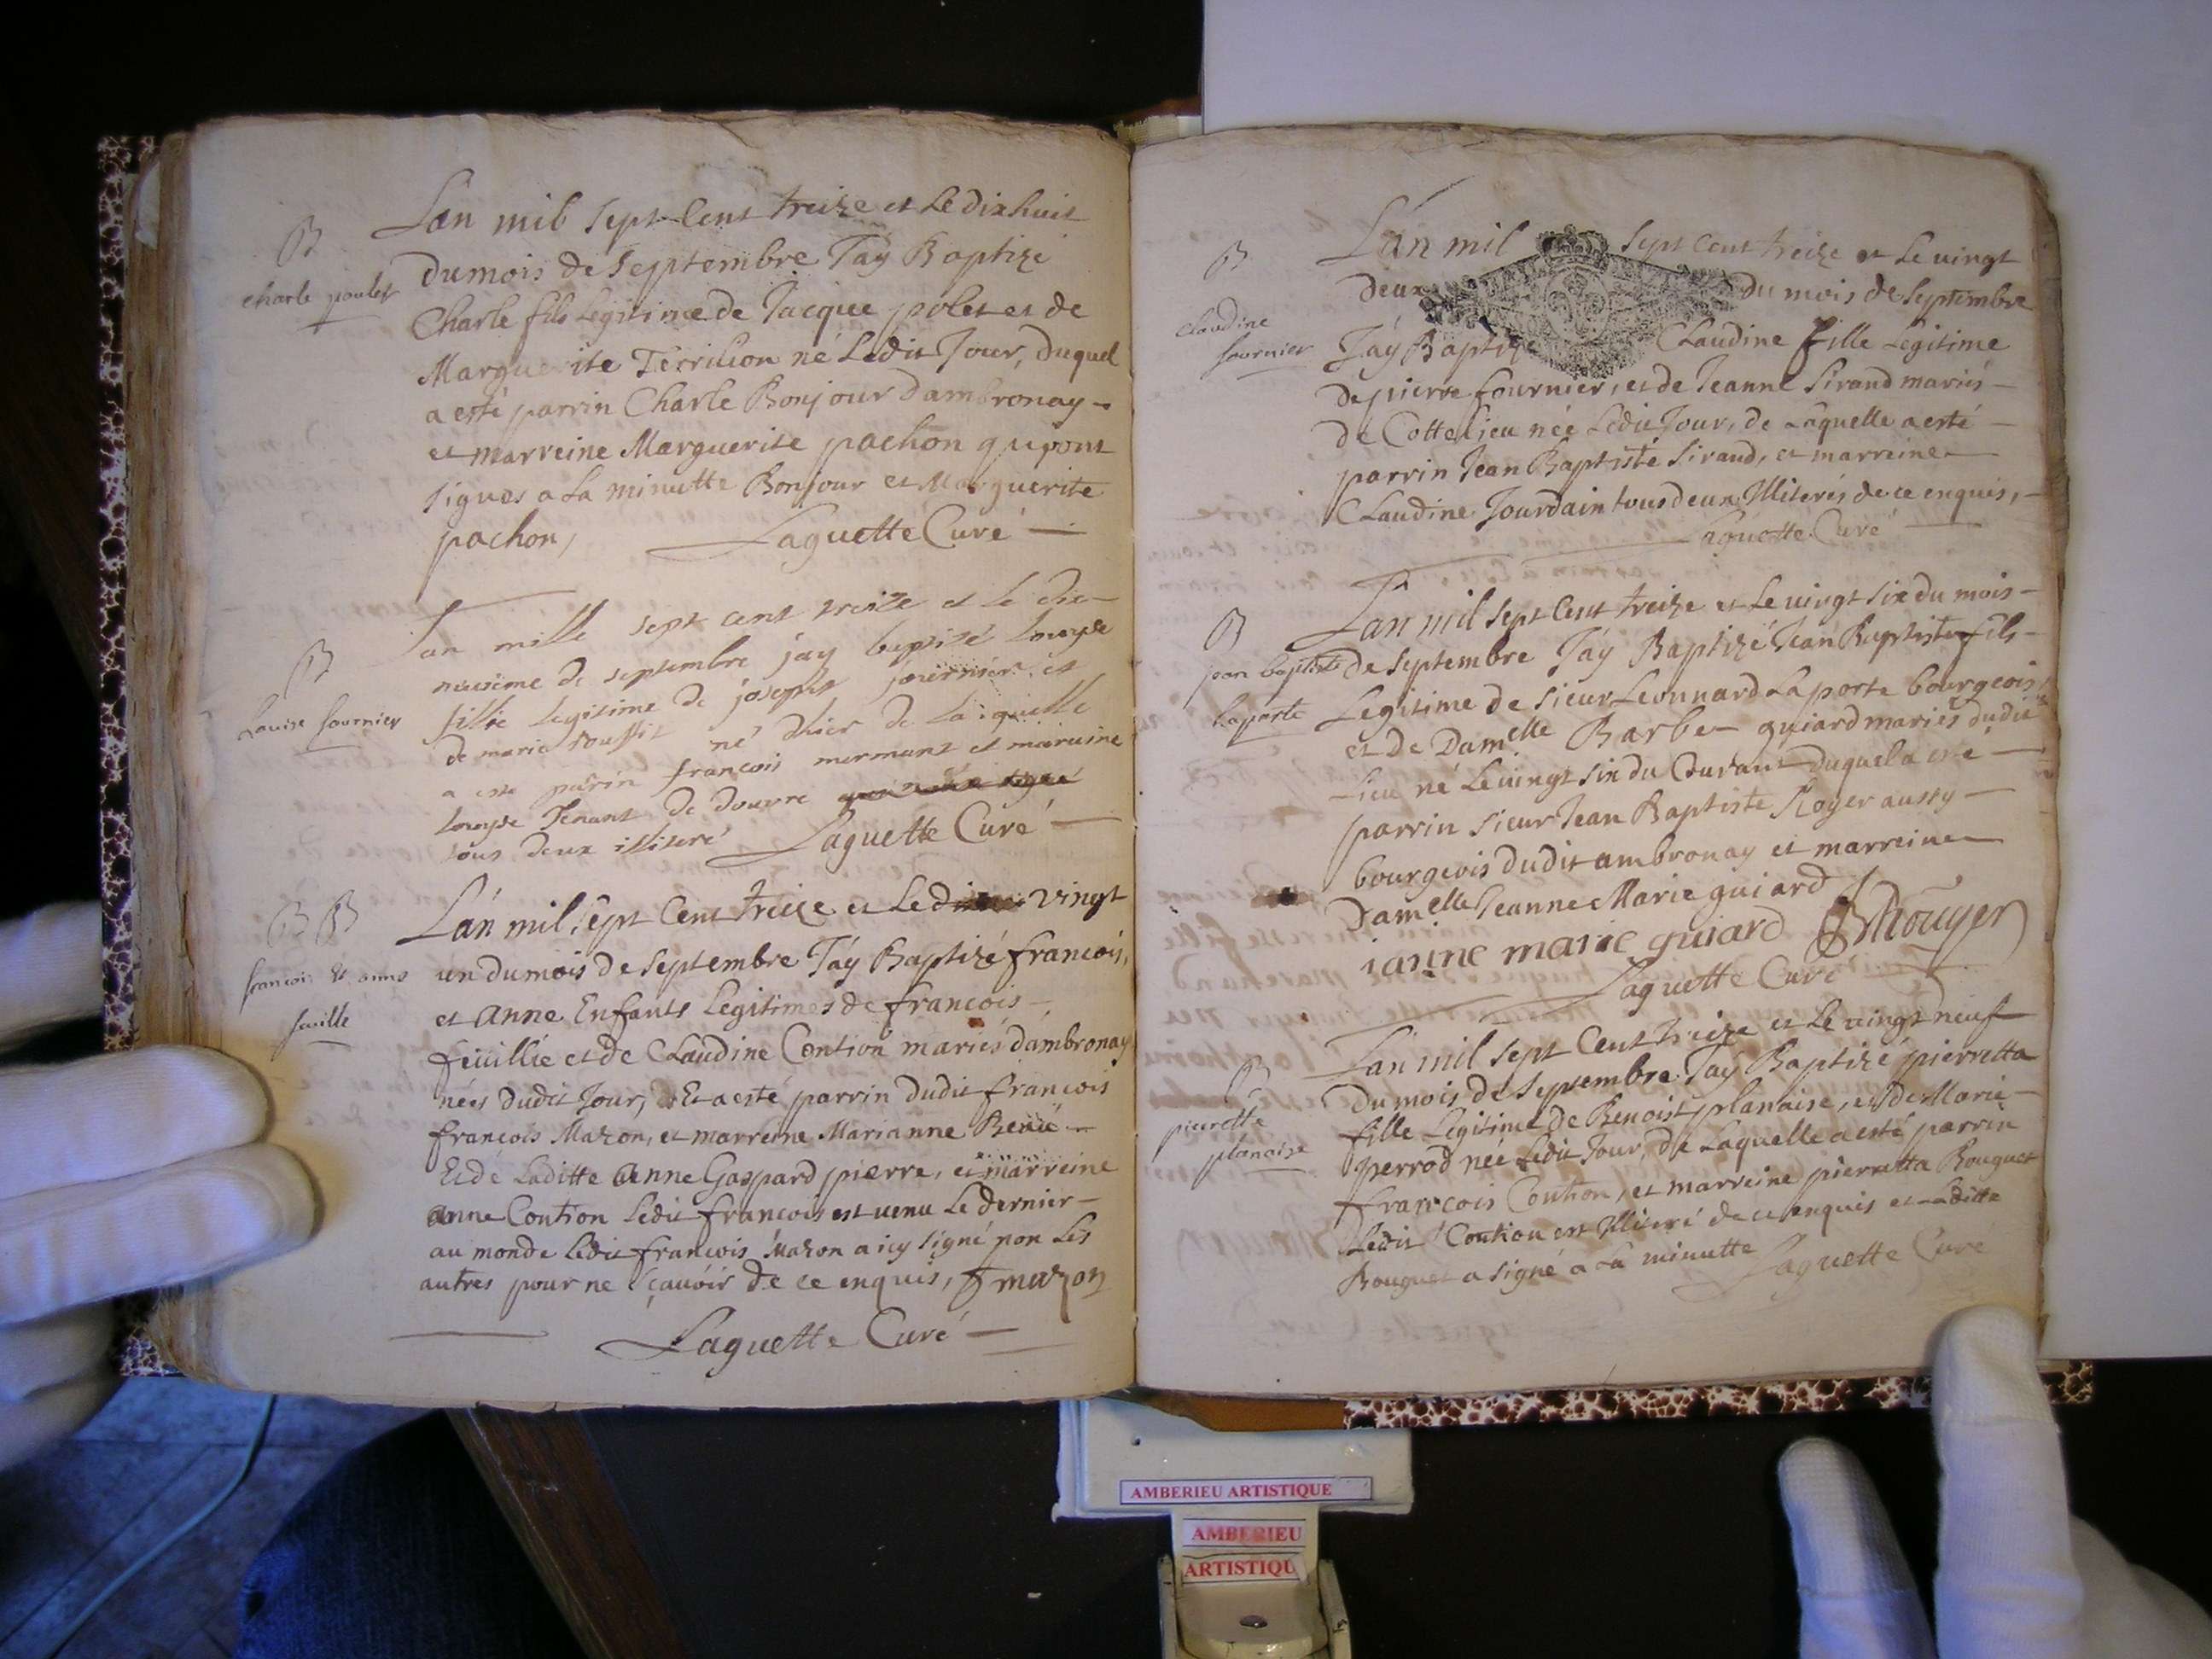 B
charle poulet
Lan mil sept Cent treize et Le dixhuit
du mois de Septembre Jay Baptizé
Charle fils Legitime de Jacque polet et de
Marguerite Terrilion né Ledit Jour, duquel
a esté parrin Charle Bonjour dambronay
et marreine Marguerite pachon qui ont
signes a La minutte Bonjour et Marguerite
pachon, Laguette Curé
B
Louise fournier
Lan mille sept cent treize et le dix
neusieme de septembre jay baptisé louyse
fillie legitime de joseph fournier et
de marie né dhier de laiquelle
a este parin francois mermant et maraine
louyse tenant de douvre
tous deux illiteré Laguette Curé
B B
francois & anne
feuille
Lan mil sept Cent treize et Le vingt
un du mois de Septembre Jay Baptizé francois,
et anne Enfants Legitimes de francois
feüillie et de Claudine Contion mariés dambronay
nées dudit Jour, Et a esté parrin dudit francois
francois Mazon, et marreine Marianne
Et de Laditte anne Gaspard pierre, et marreine
anne Contion Ledit francois est venu Le dernier
au monde Ledit francois Mazon a icy signé non Les
autres pour ne sçauoir de ce enquis, f mazon
Laguette Curé
B
claudine
fournier
Lan mil sept cent treize et Le vingt
deux du mois de Septembre
Jay Baptizé Claudine fille Legitime
de pierre fournier, et de Jeanne Sirand mariés
de Cottelieu née Ledit Jour, de Laquelle a esté
parrin Jean Baptiste Sirand, et marreine
Claudine Jourdain tous deux Illiterés de ce enquis,
Laguette Curé
B
jean baptiste
laporte
Lan mil sept Cent treize et Le vingt six du mois
de Septembre Jay Baptizé Jean Baptiste fils
Legitime de Sieur Leonnard Laporte bourgeois
et de Damelle Barbe guiard mariés dudit
Lieu né Le vingt six du Courant duquel a esté
parrin Sieur Jean Baptiste Royer aussy
bourgeois dudit ambronay et marreine
Damelle Jeanne Marie guiard
janne marie guiard
Laguette Curé
B
pierette
planaise
Lan mil sept Cent treize et Le vingt neuf
du mois de Septembre Jay Baptizé pierretta
fille Legitime de Benoist planaise, et de Marie
perrod née Ledit Jour, de Laquelle a esté parrin
francois Contion, et marreine pierretta Bouguet
Ledit Contion est Illiteré de ce enquis et Laditte
Bouguet a signé a La minutte Laguette Curé
AMBERIEU ARTISTIQUE
AMBERIEU
ARTISTIQU